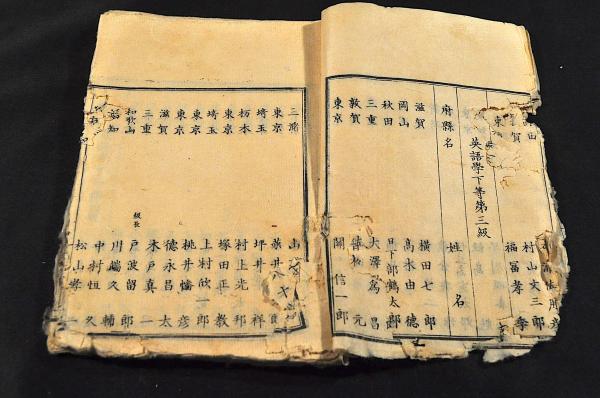 田 村山文三郎
賀 福冨孝季
英語學下等第三級
府縣名 姓名
滋賀 横田七郎
岡山 高木由德
秋田 日下部鶴太郎
三重 大澤篤昌
敦賀 松元
東京 關信一郎
三潴 山
東京 井八十
埼玉 坪井祥
栃木 村上光邦
東京 塚田正教
埼玉 上村欣一郎
東京 桃井幡彦
滋賀 德永昌太
三重 木戸真一
和歌山 級長 戸波留郎
高知 川端久輔
中村恒久
松山孝一